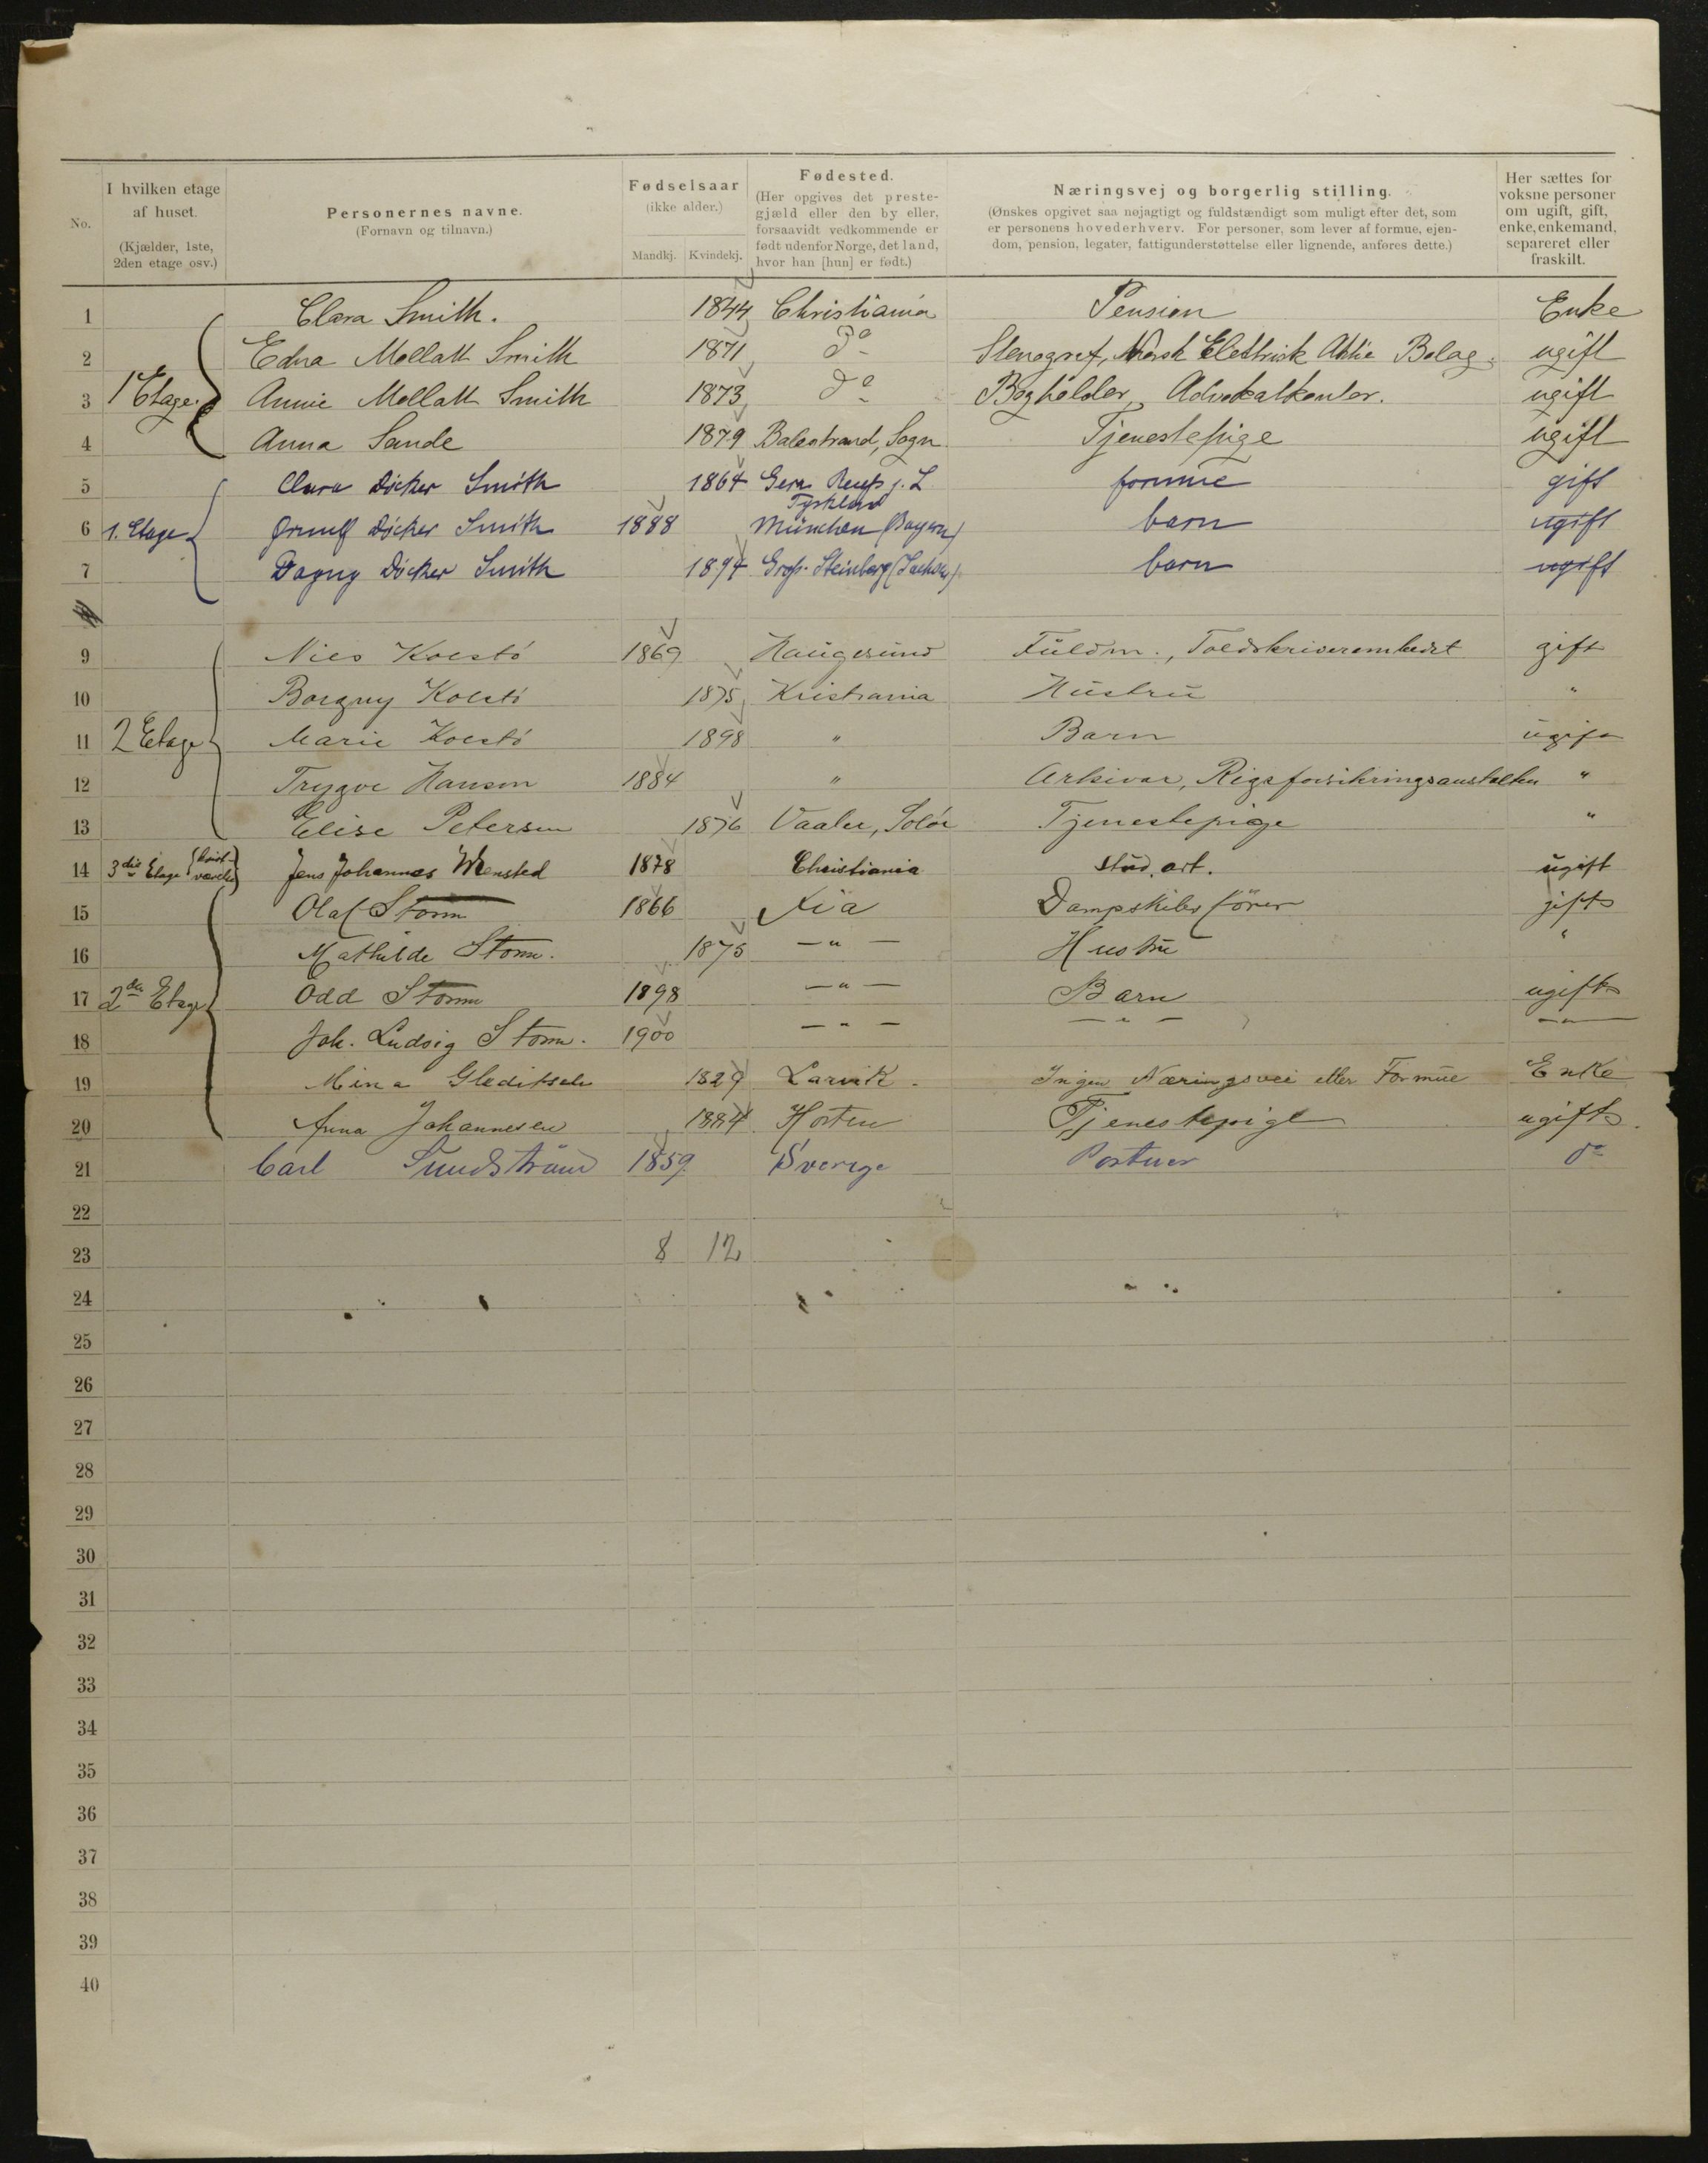 No.
I hvilken etage af huset. (Kjælder, 1ste, 2den etage osv.)
Personernes navne. (Fornavn og tilnavn.)
Fødselsaar (ikke alder.) Mandkj. Kvindekj.
Fødested. (Her opgives det prestegjæld eller den by eller, forsaavidt vedkommende er født udenfor Norge, det land, hvor han [hun] er født.)
Næringsvej og borgerlig stilling. (Ønskes opgivet saa nøjagtigt og fuldstændigt som muligt efter det, som er personens hovederhverv. For personer, som lever af formue, ejendom, pension, legater, fattigunderstøttelse eller lignende, anføres dette.)
Her sættes for voksne personer om ugift, gift, enke, enkemand, separeret eller fraskilt.
1 Clara Smith. 1844 Christiania Pension Enke
2 Edna Mollatt Smith 1871 do Stenograf, Norsk Elektrisk Aktie Bolag. ugift
3 1 Etage. Annie Mollatt Smith 1873 do Bogholder, Advokatkontor. ugift
4 Anna Sande 1879 Balestrand, Sogn Tjenestepige ugift
5 Clara Döcker Smith 1864 Gera Reuss j. L. Tyskland formue gift
6 1. Etage Ornulf Döcker Smith 1888 München (Bayern) barn ugift
7 Dagny Döcker Smith 1894 Gross-Steinberg (Sachsen) barn ugift
8
9 Nils Kolstö 1869 Haugesund Fuldm., Toldskriverembedet gift
10 Borgny Kolstö 1875 Kristiania Hustru "
11 2 Etage Marie Kolstö 1898 " Barn ugift
12 Trygve Hanson 1884 " Arkivar, Rigsforsikringsanstalten "
13 Elise Petersen 1876 Vaaler, Solör Tjenestepige "
14 3die Etage (kvist-værelse) Jens Johannes Mensted 1878 Christiania stud. art. ugift
15 Olaf Storm 1866 Xia Dampskibsförer gift
16 Mathilde Storm. 1875 — " — Hustru "
17 2den Etage Odd Storm 1898 — " — Barn ugift
18 Joh. Ludvig Storm. 1900 — " — — " — — " —
19 Mina Gleditsch 1829 Larvik. Ingen Næringsvei eller Formue Enke
20 Anna Johannesen 1884 Horten Tjenestepige ugift.
21 Carl Sundström 1859 Sverige Portner do
22
23 8 12
24
25
26
27
28
29
30
31
32
33
34
35
36
37
38
39
40